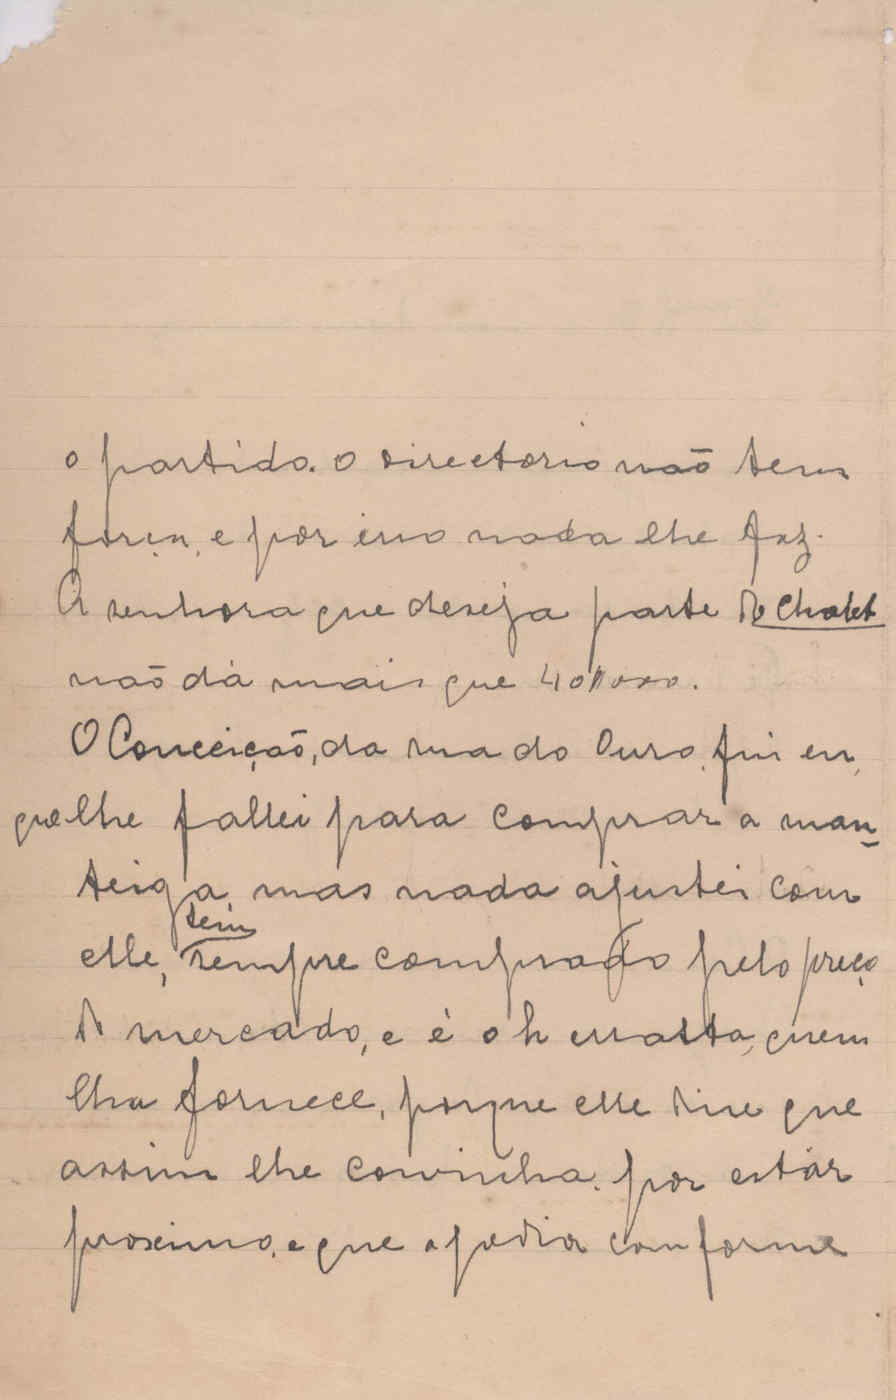 o partido. O directorio não tem
força, e por isso nada lhe faz.
A senhora que deseja parte do Chalet
não dá mais que 40$000.
O Conceição, da rua do Ouro, fui eu
que lhe fallei para comprar a man-
teiga, mas nada ajustei com
elle, tem sempre comprado pelo preço
do mercado, e é o h quem
lha fornece, porque elle disse que
assim lhe convinha por estár
proximo, e que a pedia conforme